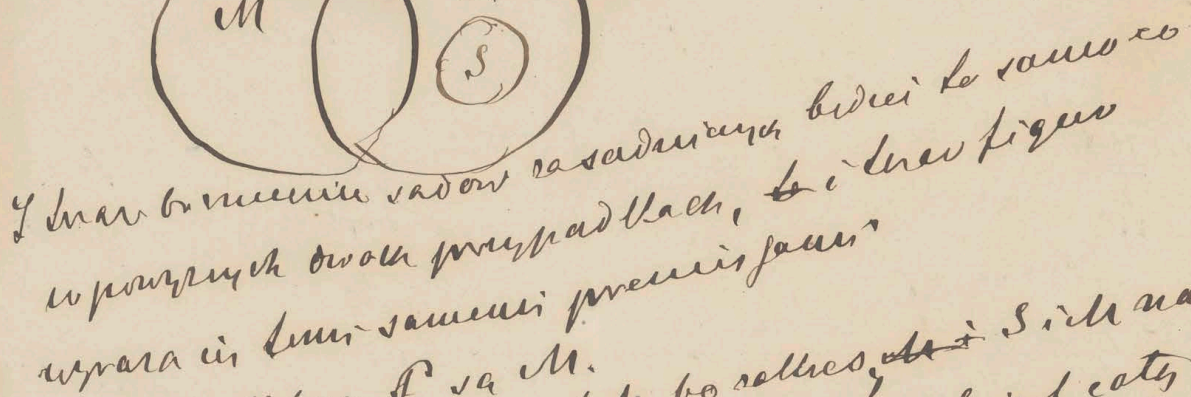 M
S
I teraz brzmienie sądów zasadniczych będzie to samo co
w powyższych dwóch przypadkach, to i teraz figura
wyraża się temi samemi premisjami
P są M.
bo zakres M i S ich na